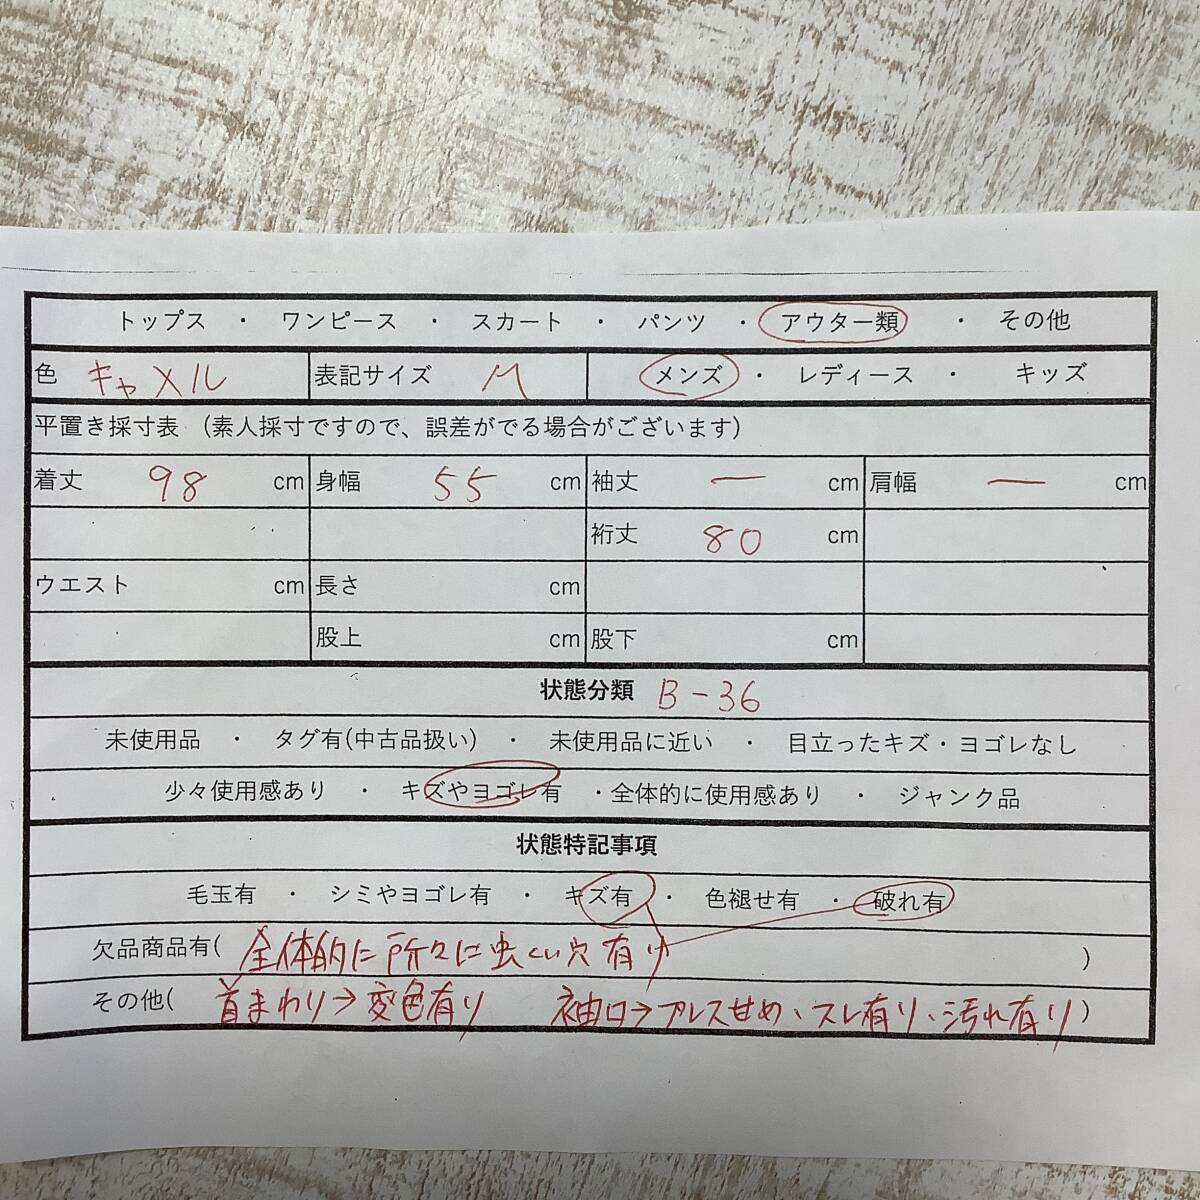 トップス ・ ワンピース ・ スカート ・ パンツ ・ アウター類 ・ その他
色 キャメル 表記サイズ M メンズ ・ レディース ・ キッズ
平置き採寸表 (素人採寸ですので、誤差がでる場合がございます)
着丈 98 cm 身幅 55 cm 袖丈 ー cm 肩幅 ー cm
裄丈 80 cm
ウエスト cm 長さ cm
股上 cm 股下 cm
状態分類 B-36
未使用品 ・ タグ有(中古品扱い) ・ 未使用品に近い ・ 目立ったキズ・ヨゴレなし
少々使用感あり ・ キズやヨゴレ有 ・全体的に使用感あり ・ ジャンク品
状態特記事項
毛玉有 ・ シミやヨゴレ有 ・ キズ有 ・ 色褪せ有 ・ 破れ有
欠品商品有( 全体的に所々に虫くい穴有り )
その他( 首まわり→変色有り 袖口→プレス甘め、スレ有り、汚れ有り )